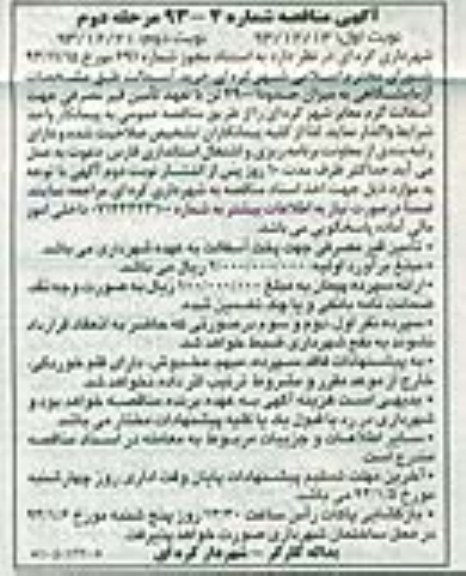 آگهی مناقصه شماره ۲ - ۹۳ مرحله دوم
نوبت اول: ۹۳/۱۲/۱۳ نوبت دوم: ۹۳/۱۲/۲۱
شهرداری کره‌ای در نظر دارد به استناد مجوز شماره ۲۹۱ مورخ
شورای محترم اسلامی شهر کره‌ای خرید آسفالت طبق مشخصات
آزمایشگاهی به میزان حدودا ۲۹۰۰ تن با تعهد تأمین قیر مصرفی جهت
آسفالت گرم معابر شهر کره‌ای را از طریق مناقصه عمومی به پیمانکار واجد
شرایط واگذار نماید. لذا از کلیه پیمانکاران تشخیص صلاحیت شده و دارای
رتبه‌بندی از معاونت برنامه‌ریزی و اشتغال استانداری فارس دعوت به عمل
می آید حداکثر ظرف مدت ۱۰ روز پس از انتشار نوبت دوم آگهی با توجه
به موارد ذیل جهت اخذ اسناد مناقصه به شهرداری کره‌ای مراجعه نمایند.
ضمناً در صورت نیاز به اطلاعات بیشتر به شماره داخلی امور
مالی آماده پاسخگویی می باشد.
• تأمین قیر مصرفی جهت پخت آسفالت به عهده شهرداری می باشد.
• مبلغ برآورد اولیه: ریال می باشد.
• ارائه سپرده پیمان به مبلغ ریال به صورت وجه نقد
ضمانت نامه بانکی و یا چک تضمین شده.
• سپرده نفر اول، دوم و سوم در صورتی که حاضر به انعقاد قرارداد
نشوند به نفع شهرداری ضبط خواهد شد.
• به پیشنهادات فاقد سپرده، مبهم، مخدوش، دارای قلم خوردگی،
خارج از موعد مقرر و مشروط ترتیب اثر داده نخواهد شد.
• بدیهی است هزینه آگهی به عهده برنده مناقصه خواهد بود و
شهرداری در رد یا قبول یک یا کلیه پیشنهادات مختار می باشد.
• سایر اطلاعات و جزییات مربوط به معامله در اسناد مناقصه
مندرج است.
• آخرین مهلت تسلیم پیشنهادات پایان وقت اداری روز چهارشنبه
مورخ ۹۴/۱/۵ می باشد.
• بازگشایی پاکات رأس ساعت ۱۳:۳۰ روز پنج شنبه مورخ ۹۴/۱/۶
در محل ساختمان شهرداری صورت خواهد پذیرفت.
یداله کارگر - شهردار کره ای